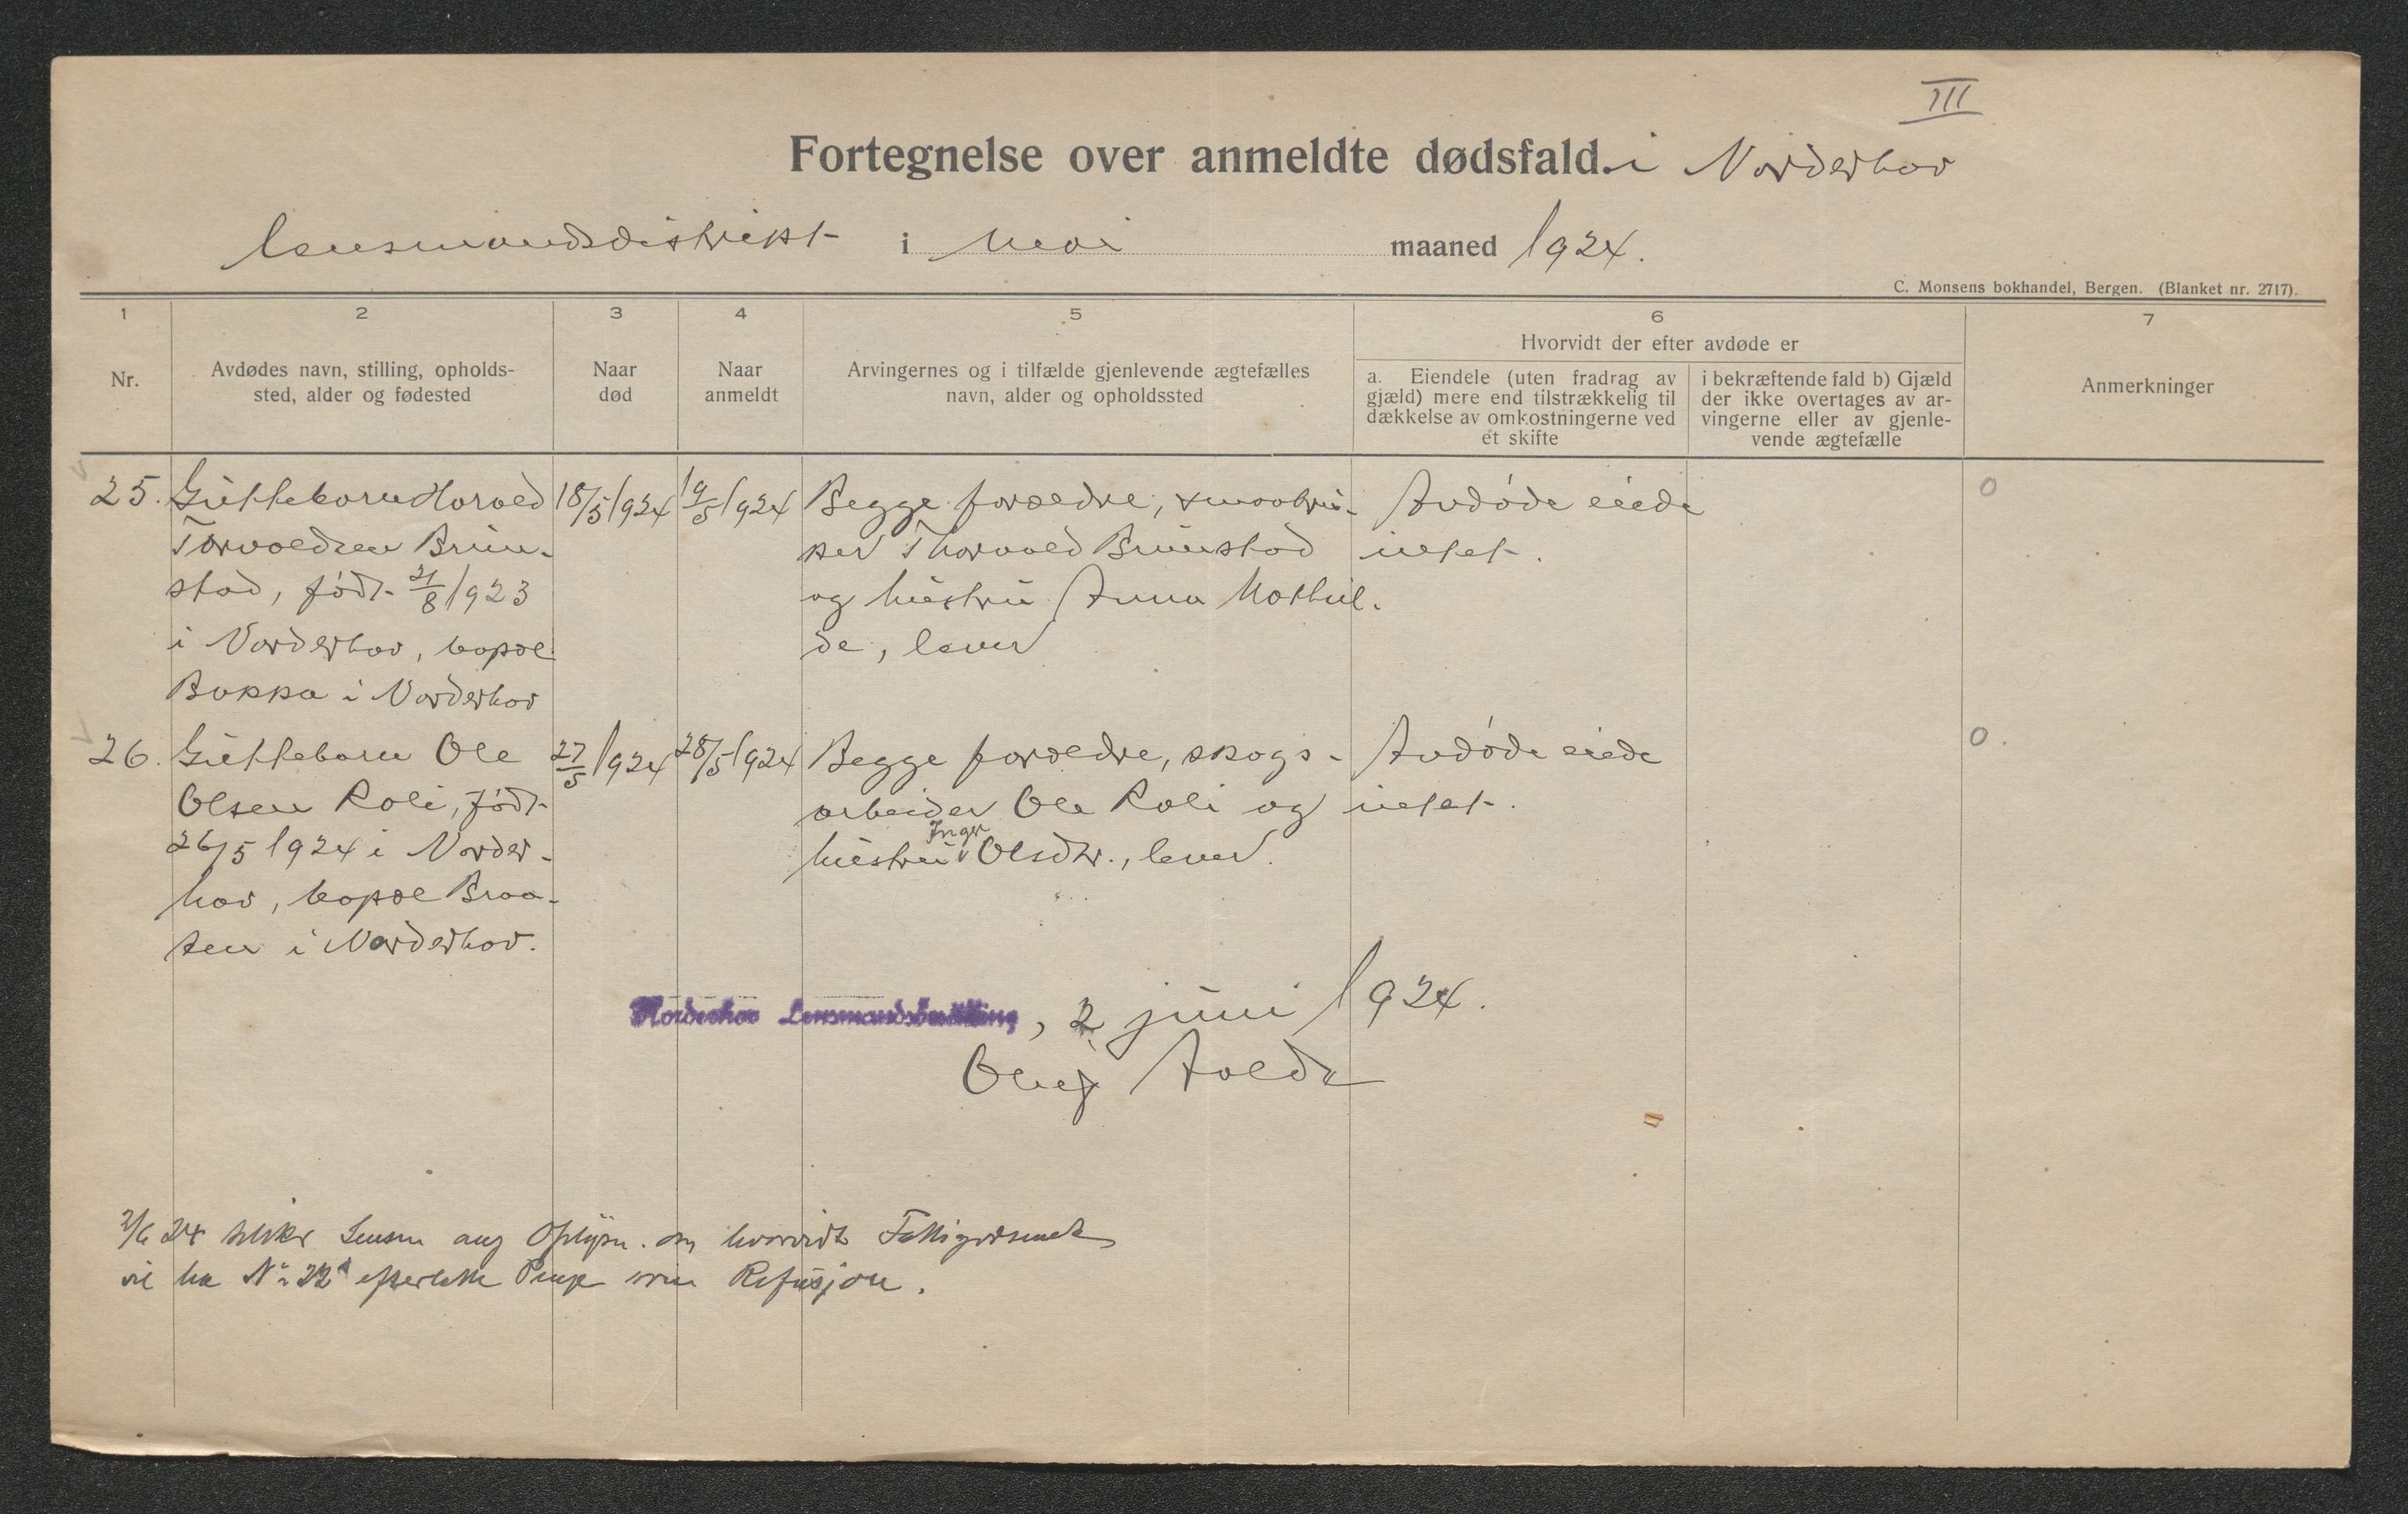 III
Fortegnelse over anmeldte dødsfald. i Norderhov
lensmandsdistrikt i mai maaned 1924.
C. Monsens bokhandel, Bergen. (Blanket nr. 2717).
1 2 3 4 5 6 7
Nr.
Avdødes navn, stilling, opholds-
sted, alder og fødested
Naar
død
Naar
anmeldt
Arvingernes og i tilfælde gjenlevende ægtefælles
navn, alder og opholdssted
Hvorvidt der efter avdøde er
a. Eiendele (uten fradrag av
gjæld) mere end tilstrækkelig til
dækkelse av omkostningerne ved
et skifte
i bekræftende fald b) Gjæld
der ikke overtages av ar-
vingerne eller av gjenle-
vende ægtefælle
Anmerkninger
25. Guttebarn Harald 18/5 1924 19/5 1924 Begge forældre, smaabru- Avdøde eiede 0
Torvaldsen Brun- ker Thorvald Brunstad intet.
stad, født 21/8 1923 og hustru Anna Mathil-
i Norderhov, bopæl de, lever
Bakka i Norderhov
26. Guttebarn Ole 27/5 1924 28/5 1924 Begge forældre, skogs- Avdøde eiede 0.
Olsen Roli, født arbeider Ole Roli og intet.
26/5 1924 i Norder- hustru Inger Olsdtr., lever.
hov, bopæl Braa-
ten i Norderhov.
Norderhov Lensmandsbestilling, 2 juni 1924.
2/6 24 Lensm ang Oplysn. om hvorvidt
vil ha No 22 efterlatte Penge som Refusjon.